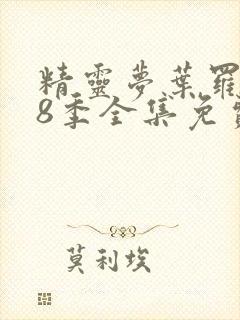 精靈夢葉羅
8季全集免費
莫利埃